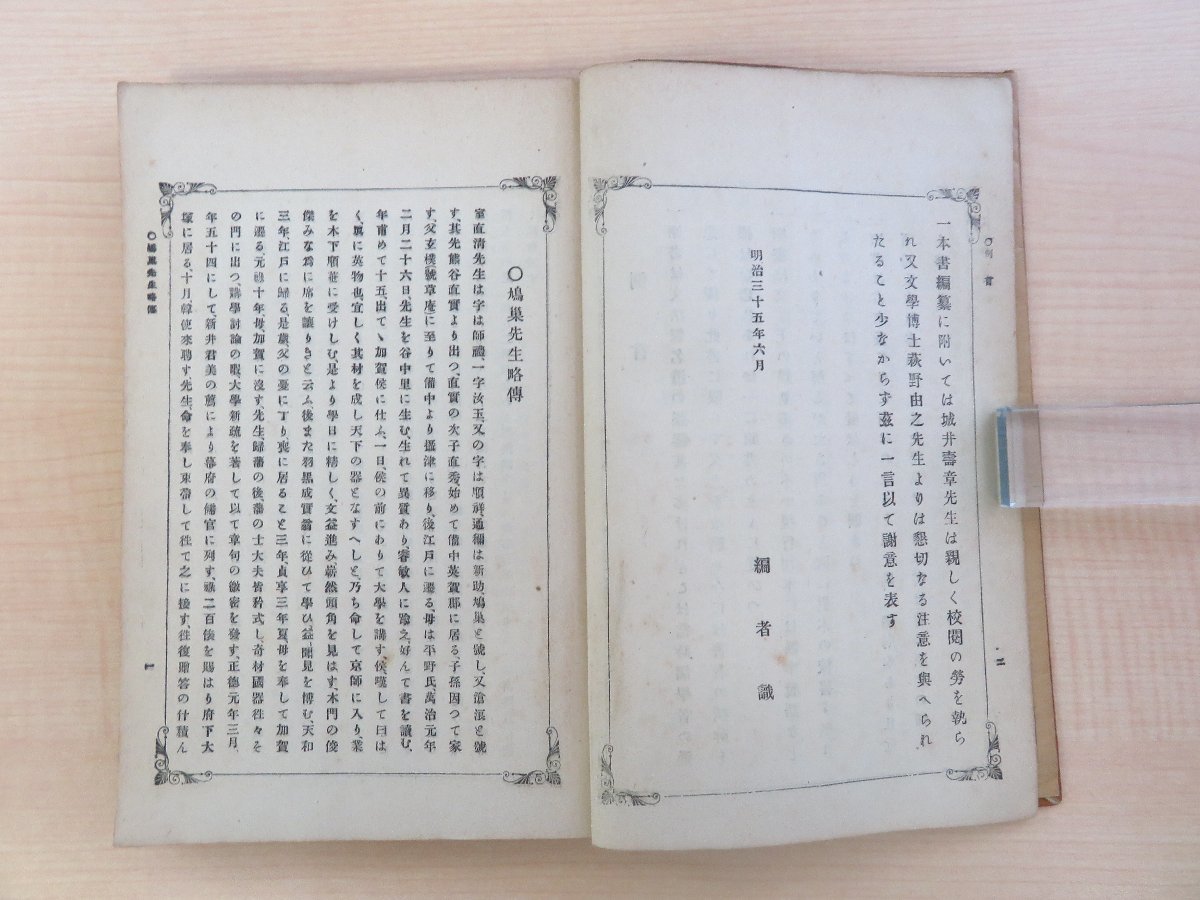 ○例言
一本書編纂に附いては城井壽章先生は親しく校閲の勞を執ら
れ又文學博士萩野由之先生よりは懇切なる注意を與へられ
たること少なからず茲に一言以て謝意を表す
明治三十五年六月
編者識
二
○鳩巢先生略傳
室直淸先生は字は師禮、一字汝玉、又の字は順祥、通稱は新助、鳩巢と號し、又滄浪と號
す、其先熊谷直實より出つ、直實の次子直秀、始めて備中英賀郡に居る、子孫因つて家
す、父玄樸號草庵に至りて備中より攝津に移り、後江戸に遷る、母は平野氏、萬治元年
二月二十六日、先生を谷中里に生む、生れて異質あり、睿敏人に踰之、好んて書を讀む、
年甫めて十五、出てゝ加賀侯に仕ふ、一日、侯の前にありて大學を講す、侯、嘆して曰は
く、眞に英物也、宜しく其材を成し天下の器となすへしと、乃ち命して京師に入り、業
を木下順菴に受けしむ、是より學日に精しく、文益進み、嶄然頭角を見はす、木門の俊
傑みな爲に席を讓りきと云ふ後また羽黑成實翁に從ひて學ひ、益、聞見を博む、天和
三年江戸に歸る、是歲父の憂に丁り、喪に居ること三年貞享三年夏、母を奉して加賀
に遷る、元祿十年母加賀に沒す先生、歸藩の後、藩の士大夫皆矜式し、奇材國器往々そ
の門に出つ、講學討論の暇、大學新疏を著して以て章句の微密を發す、正德元年三月、
年五十四にして、新井君美の薦により幕府の儒官に列す、祿二百俵を賜はり府下大
塚に居る、十月韓使來聘す先生命を奉し束帶して往て之に接す、往復贈答の什積ん
○鳩巢先生略傳
一